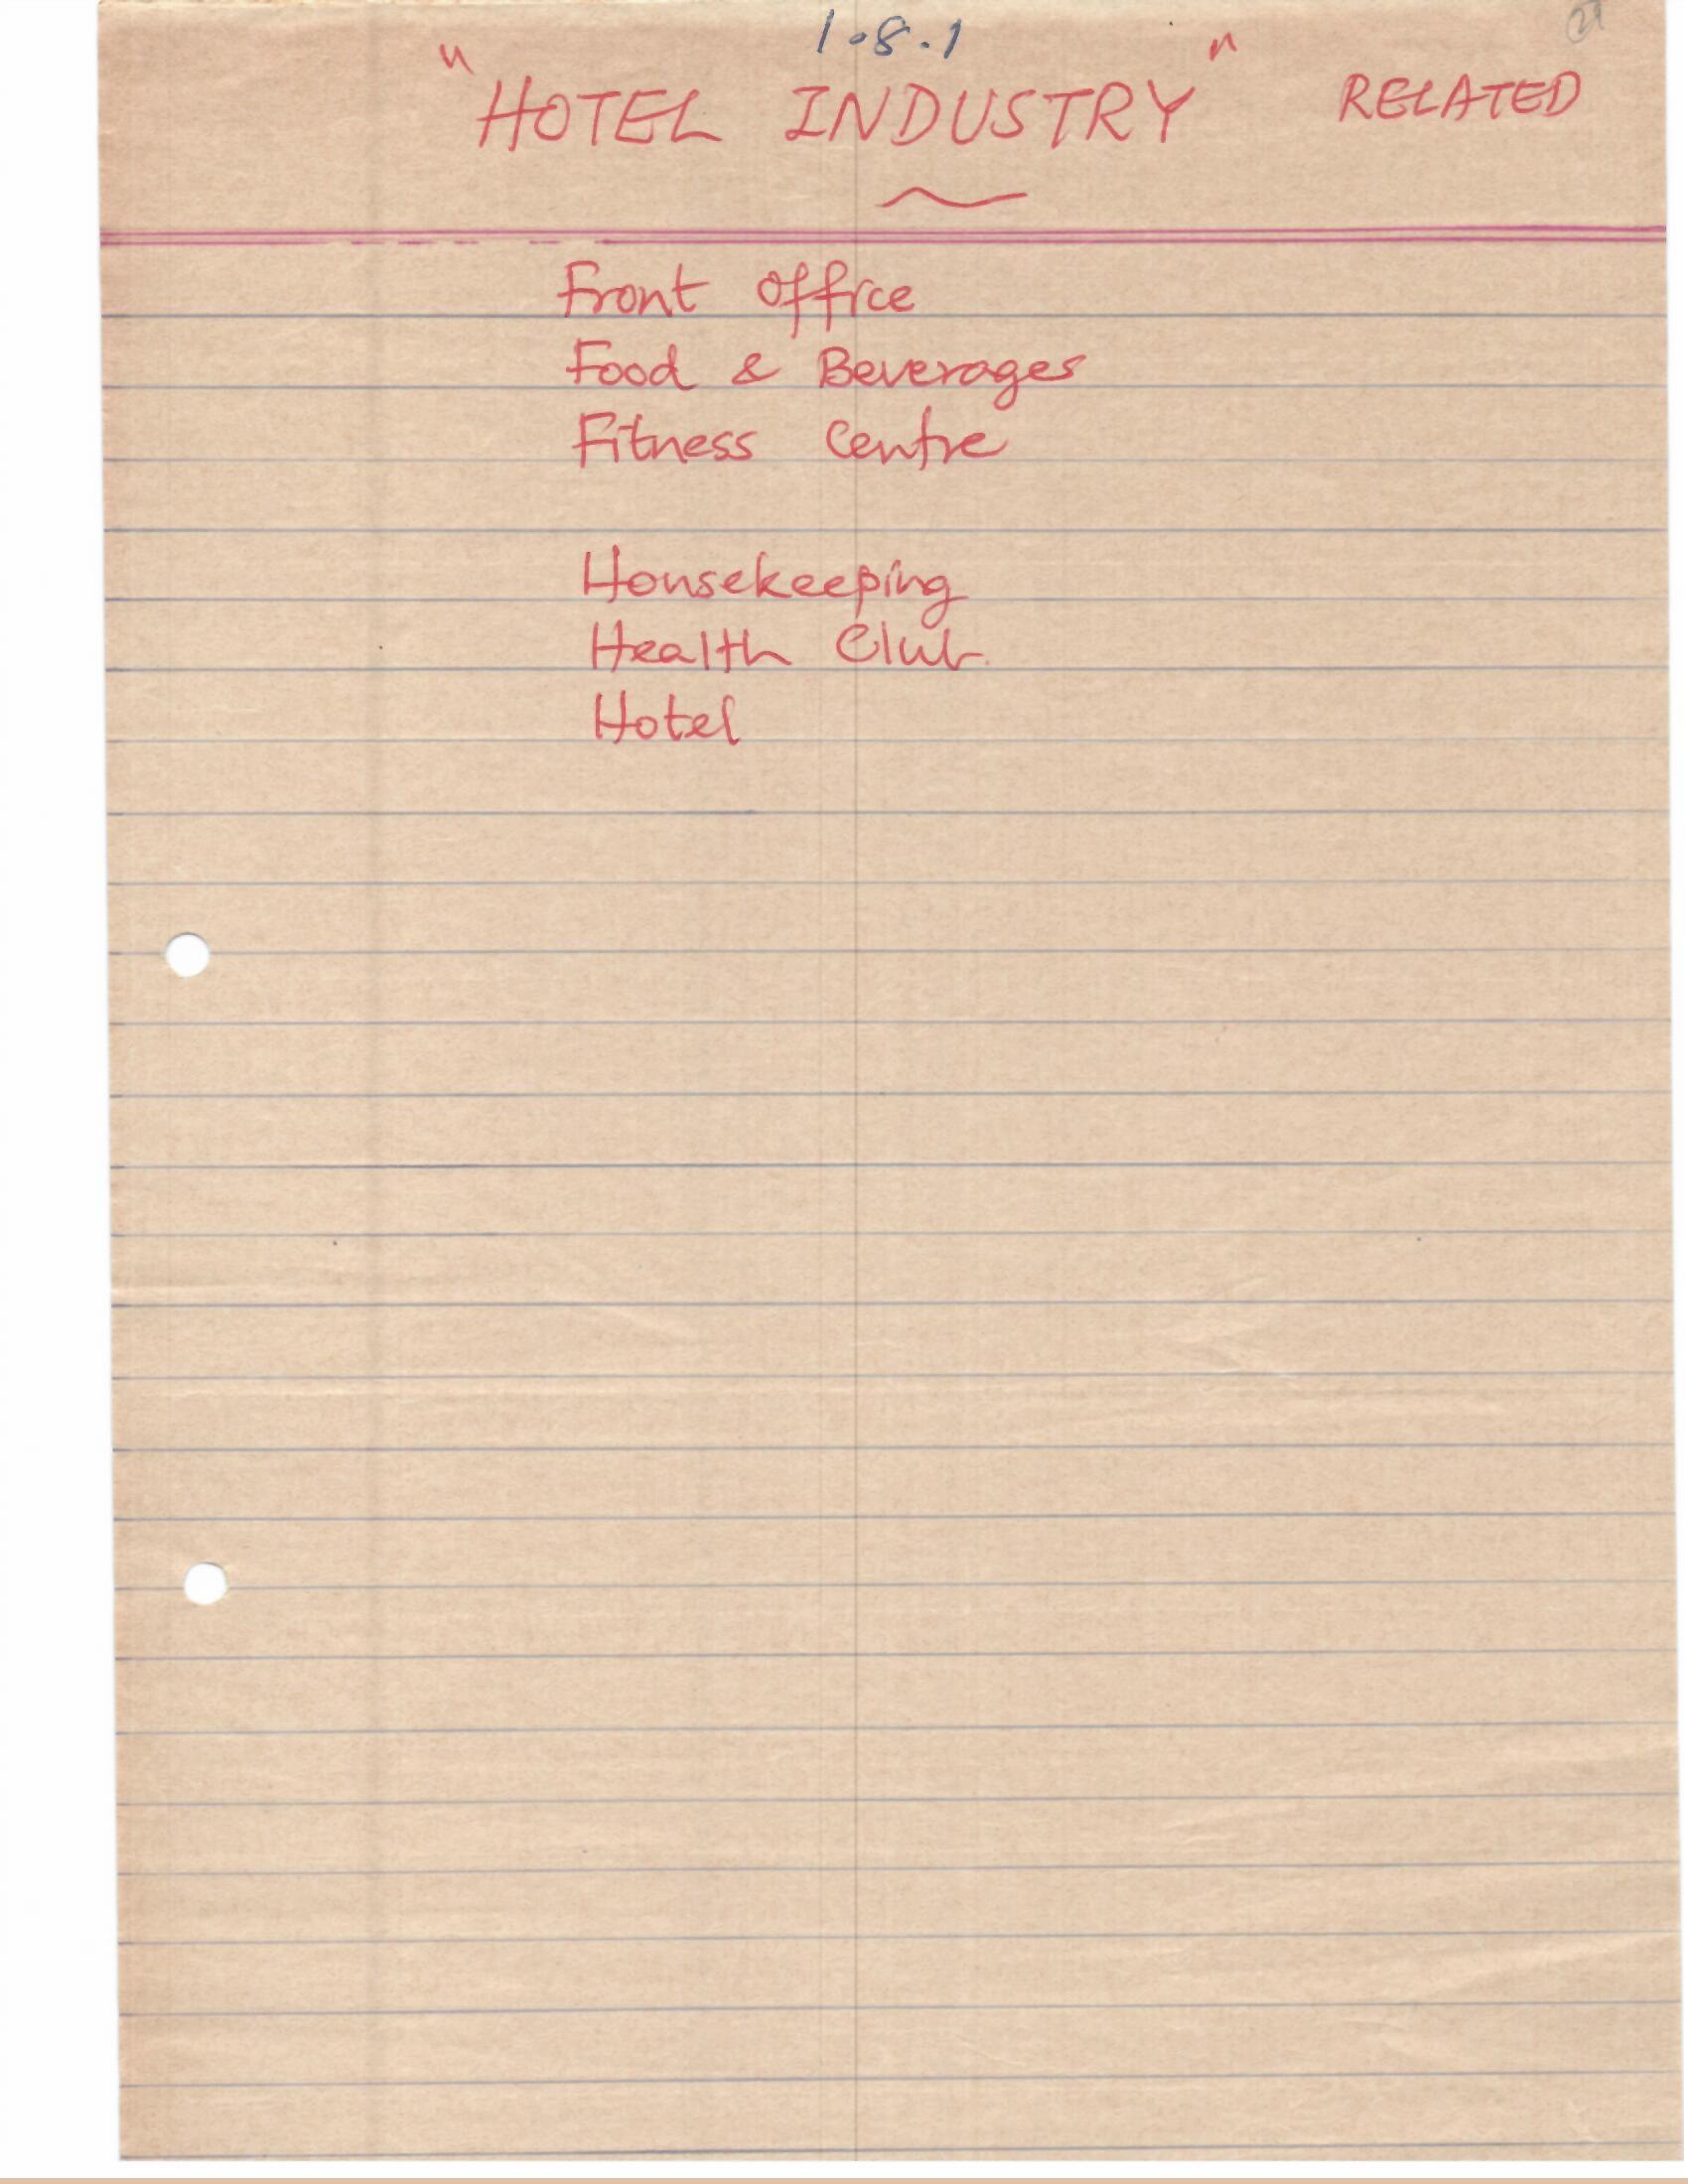 1.8.1
"HOTEL INDUSTRY" RELATED
Front Office
Food & Beverages
Fitness Centre
Housekeeping
Health Club
Hotel